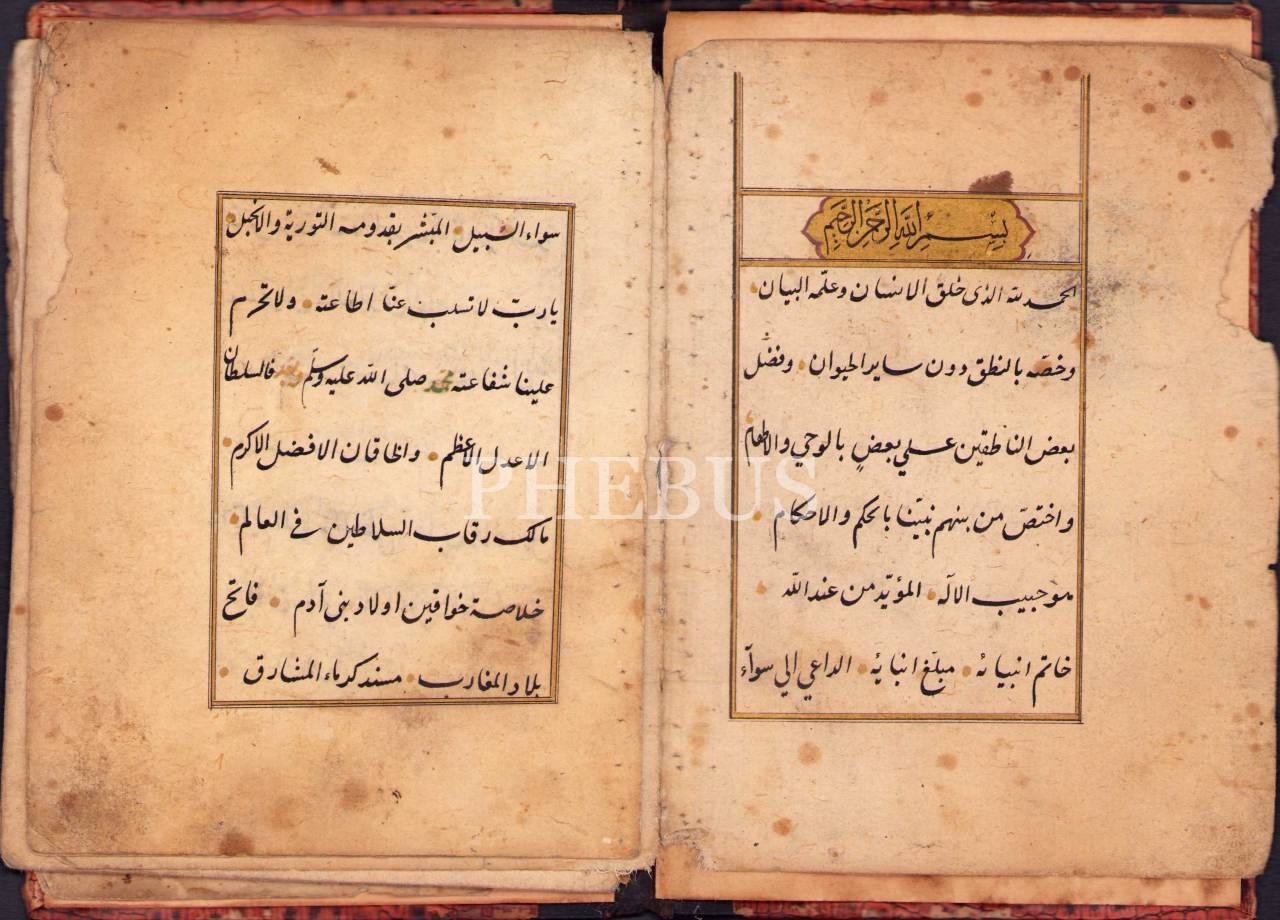 بسم الله الرحمن الرحيم
الحمد لله الذى خلق الانسان وعلّمه البيان
وخصّه بالنطق دون ساير الحيوان وفضّل
بعض الناطقين علي بعضٍ بالوحي والالهام
واختصّ من بينهم نبيّنا بالحكم والاحكام
هو حبيب الاله المؤيّد من عند اللّه
خاتم انبيائه مبلّغ انبائه الداعي الي سوآء
سواء السبيل المبشر بقدومه التورية والانجيل
يا ربّ لا تسلب عنّا اطاعته ولا تحرم
علينا شفاعته محمد صلى اللّه عليه وسلّم فالسلطان
الاعدل الاعظم والخاقان الافضل الاكرم
مالك رقاب السلاطين فى العالم
خلاصة خواقين اولاد بنى آدم فاتح
بلاد المغارب مسند كرماء المشارق
PHEBUS